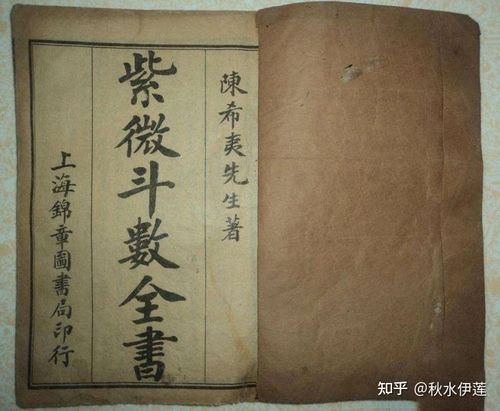 陳希夷先生著
紫微斗數全書
上海錦章圖書局印行
知乎 @秋水伊莲